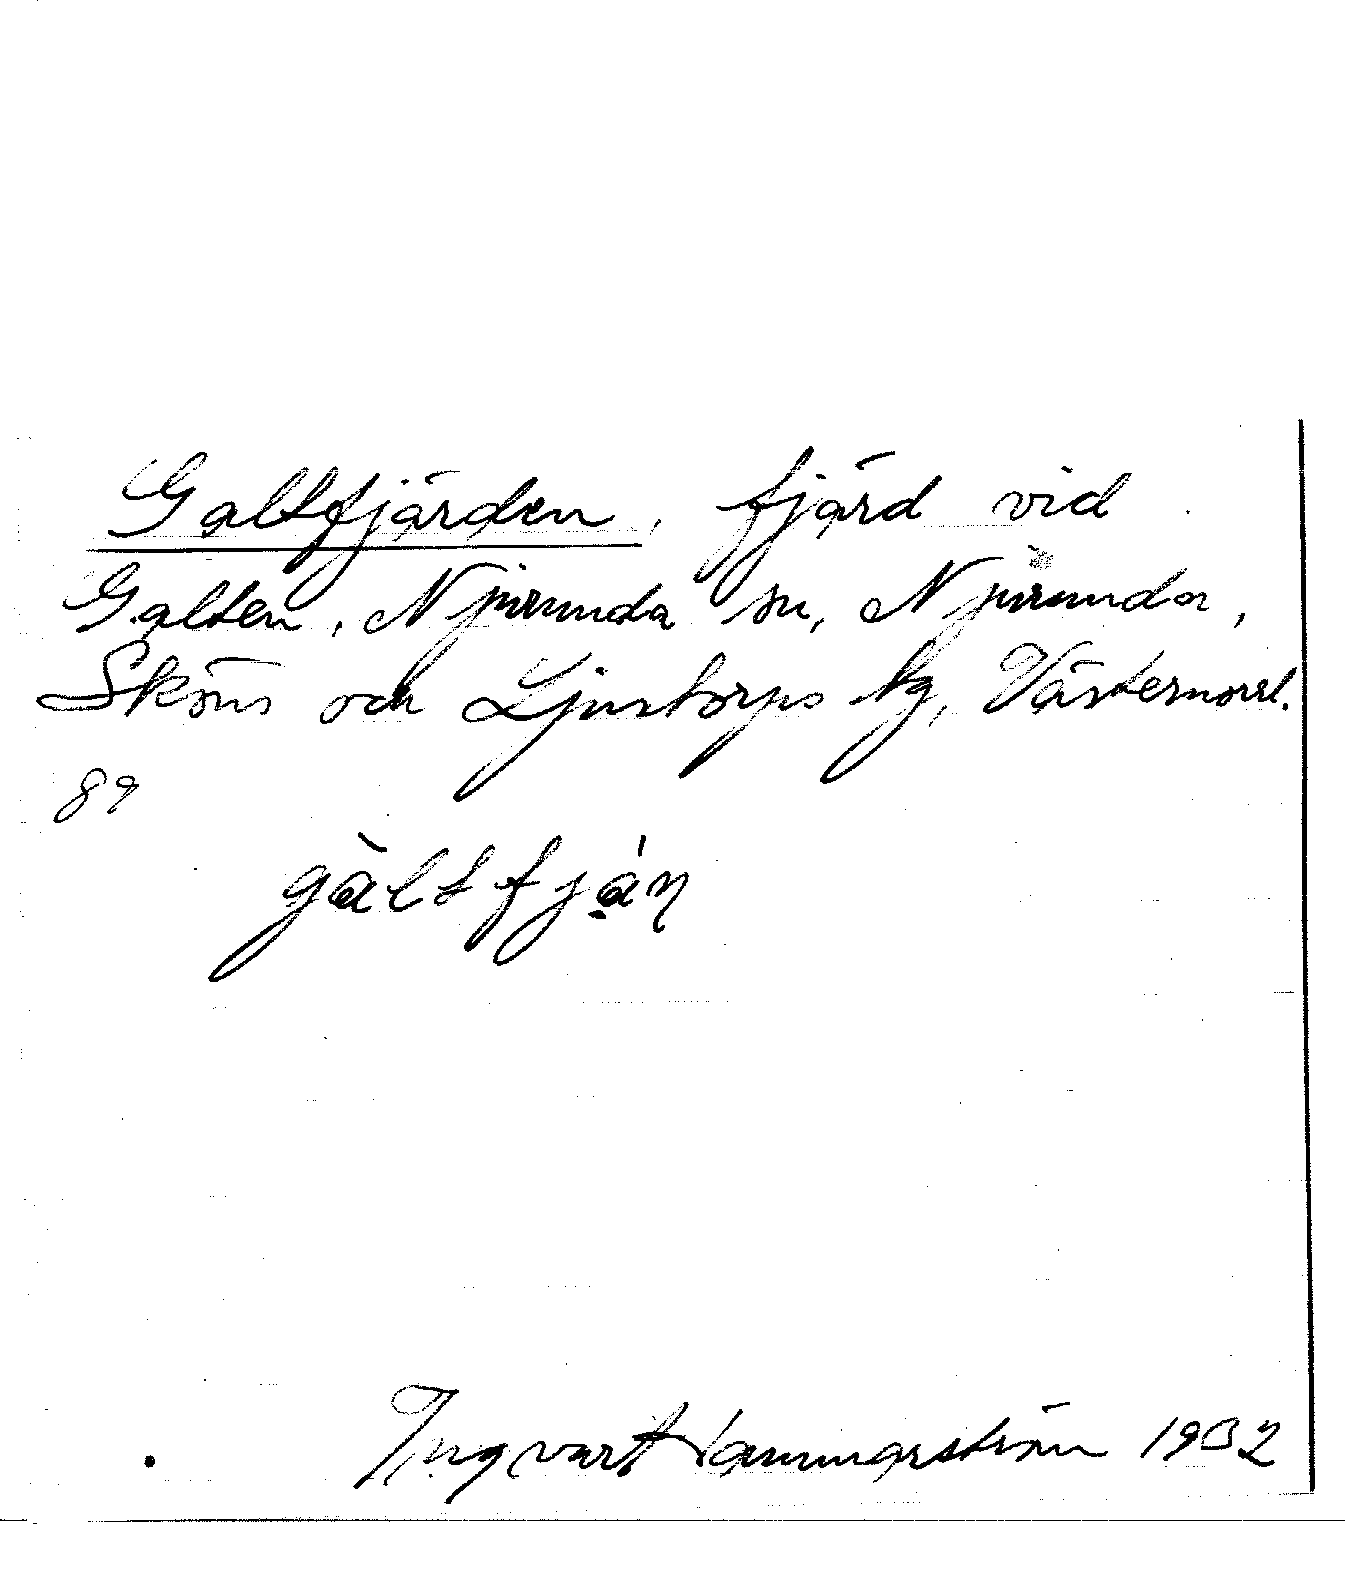 Galtfjärden, fjärd vid
Galten, Njurunda sn, Njurunda,
Sköns och Ljustorps tg, Västernorrl.
89
gàltfjạ́ɳ
Ingvar Hammarström 1932